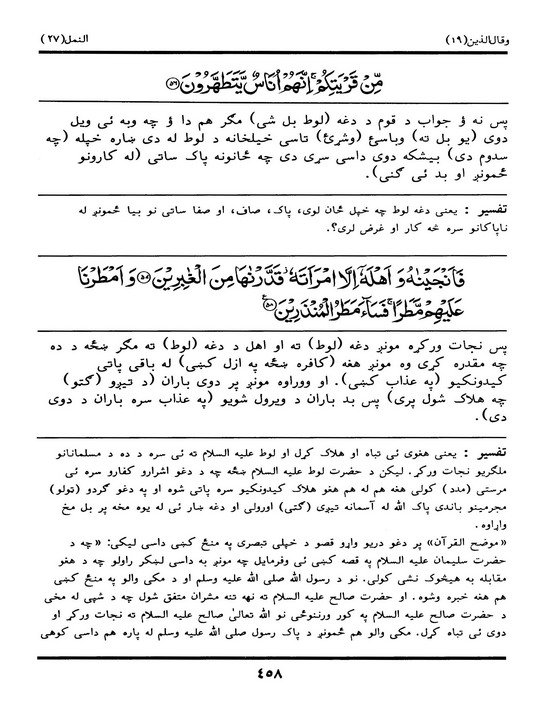 وقال الذين(١٩) النمل(٢٧)
مِّنْ قَرْيَتِكُمْ ۚ اِنَّهُمْ اُنَاسٌ يَّتَطَهَّرُوْنَ ﴿۵۶﴾
پس نه ؤ جواب د قوم د دغه (لوط بل شی) مګر هم دا ؤ چه وبه ئی ویل
دوی (یو بل ته) وباسئ (وشړئ) تاسی خیلخانه د لوط له دی ښاره خپله (چه
سدوم دی) بیشکه دوی داسی سړی دی چه ځانونه پاک ساتی (له کارونو
ځمونږ او بد ئی ګنی).
تفسیر : یعنی دغه لوط چه خپل ځان لوی، پاک، صاف، او صفا ساتی نو بیا ځمونږ له
ناپاکانو سره څه کار او غرض لری؟.
فَاَنْجَيْنٰهُ وَ اَهْلَهٗٓ اِلَّا امْرَاَتَهٗ ۫ قَدَّرْنٰهَا مِنَ الْغٰبِرِيْنَ ﴿۵۷﴾ وَ اَمْطَرْنَا
عَلَيْهِمْ مَّطَرًا ۚ فَسَآءَ مَطَرُ الْمُنْذَرِيْنَ ﴿۵۸﴾
پس نجات ورکړه مونږ دغه (لوط) ته او اهل د دغه (لوط) ته مګر ښځه د ده
چه مقدره کړی وه مونږ هغه (کافره ښځه په ازل کښی) له باقی پاتی
کیدونکیو (په عذاب کښی). او ووراوه مونږ پر دوی باران (د تیږو (ګتو)
چه هلاک شول پری) پس بد باران د ویرول شویو (په عذاب سره باران د دوی
دی).
تفسیر : یعنی هغوی ئی تباه او هلاک کړل او لوط علیه السلام ته ئی سره د ده د مسلمانانو
ملګریو نجات ورکړ. لیکن د حضرت لوط علیه السلام ښځه چه د دغو اشرارو کفارو سره ئی
مرستی (مدد) کولی هغه هم له هم هغو هلاک کیدونکیو سره پاتی شوه او په دغو ګردو (ټولو)
مجرمینو باندی پاک الله له آسمانه تیږی (ګتی) اورولی او دغه ښار ئی له یوه مخه پر بل مخ
واړاوه.
«موضح القرآن» پر دغو دریو واړو قصو د خپلی تبصری په منځ کښی داسی لیکی: «چه د
حضرت سلیمان علیه السلام په قصه کښی ئی وفرمایل چه مونږ به داسی لښکر راولو چه د هغو
مقابله به هیڅوک نشی کولی. نو د رسول الله صلی الله علیه وسلم او د مکی والو په منځ کښی
هم هغه خبره وشوه. او حضرت صالح علیه السلام ته نهه تنه مشران متفق شول چه د شپی له مخی
د حضرت صالح علیه السلام په کور ورننوځی نو الله تعالیٰ صالح علیه السلام ته نجات ورکړ او
دوی ئی تباه کړل. مکی والو هم ځمونږ د پاک رسول صلی الله علیه وسلم له پاره هم داسی کوهی
٤٥٨